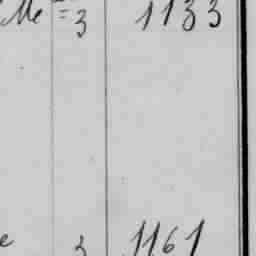 Me = 3 1133
e 3 1161